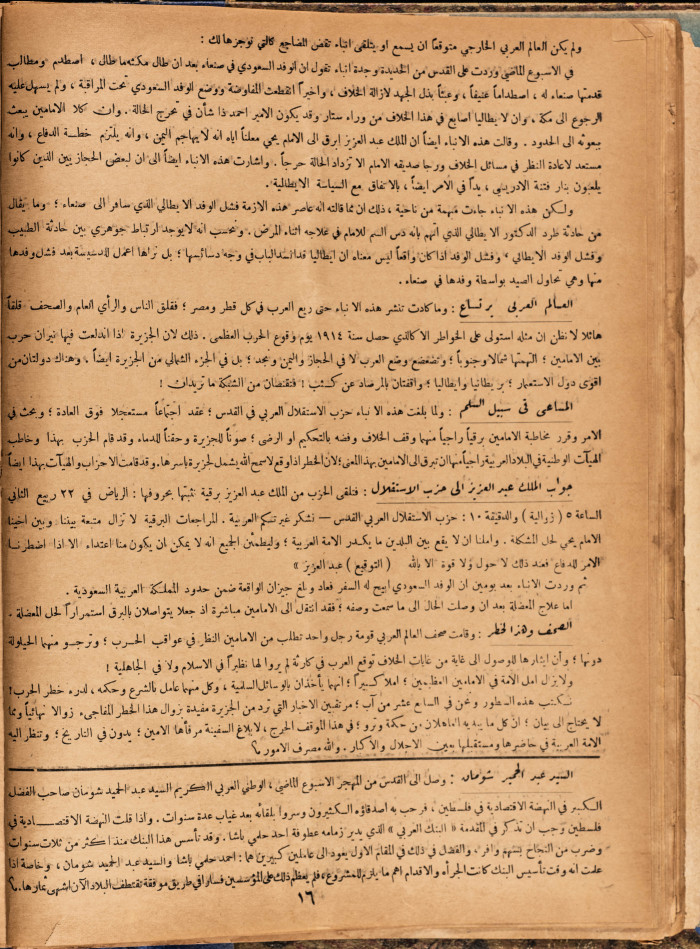 ولم يكن العالم العربي الخارجي متوقعاً ان يسمع او يتلقى انباء تقض المضاجع كالتي نوجزها لك :
في الاسبوع الماضي وردت على القدس من الحديدة وجدة انباء تقول ان الوفد السعودي في صنعاء بعد ان طال مكثه ما طال ، اصطدم ومطالب
قدمتها صنعاء له ، اصطداماً عنيفاً ، وعبثاً بذل الجهد لازالة الخلاف ، واخيراً انقطعت المفاوضة ووضع الوفد السعودي تحت المراقبة ، ولم يسهل عليه
الرجوع الى مكة ، وان لايطاليا اصابع في هذا الخلاف من وراء ستار وقد يكون الامير احمد ذا شأن في تحرج الحالة . وان كلا الامامين يبعث
ببعوثه الى الحدود . وقالت هذه الانباء ايضاً ان الملك عبد العزيز ابرق الى الامام يحيى معلناً اياه انه لايهاجم اليمن ، وانه يلتزم خطة الدفاع ، وانه
مستعد لاعادة النظر في مسائل الخلاف ورجا صديقه الامام الا تزداد الحالة حرجاً . واشارت هذه الانباء ايضاً الى ان لبعض الحجازيين الذين كانوا
يلعبون بنار فتنة الادريسي ، يداً في الامر ايضاً ، بالاتفاق مع السياسة الايطالية .
ولكن هذه الانباء جاءت مبهمة من ناحية ، ذلك ان مما قالته انه عاصر هذه الازمة فشل الوفد الايطالي الذي سافر الى صنعاء ؛ وما يقال
من حادثة طرد الدكتور الايطالي الذي اتهم بانه دس السم للامام في علاجه اثناء المرض . ونحسب انه لايوجد ارتباط جوهري بين حادثة الطبيب
وفشل الوفد الايطالي ، وفشل الوفد اذا كان واقعاً ليس معناه ان ايطاليا قد انسد الباب في وجه دسائسها ؛ بل تراها اعمل للدسيسة بعد فشل وفدها
منها وهي تحاول الصيد بواسطة وفدها في صنعاء .
العالم العربي يرتاع : وما كادت تنشر هذه الانباء حتى ريع العرب في كل قطر ومصر ؛ فقلق الناس والرأي العام والصحف قلقاً
هائلا لا نظن ان مثله استولى على الخواطر الا كالذي حصل سنة ١٩١٤ يوم وقوع الحرب العظمى . ذلك لان الجزيرة اذا اندلعت فيها نيران حرب
بين الامامين ؛ التهمتها شمالا وجنوباً ؛ وتضعضع وضع العرب لا في الحجاز واليمن ونجد ؛ بل في الجزء الشمالي من الجزيرة ايضاً ، وهناك دولتان من
اقوى دول الاستعمار ؛ بريطانيا وايطاليا ؛ واقفتان بالمرصاد عن كثب ! فتقنصان من الشبكة ما تريدان !
المساعي في سبيل السلم : ولما بلغت هذه الانباء حزب الاستقلال العربي في القدس ؛ عقد اجتماعاً مستعجلا فوق العادة ؛ وبحث في
الامر وقرر مخاطبة الامامين برقياً راجياً منهما وقف الخلاف وفضه بالتحكيم او الرضى ؛ صوناً للجزيرة وحقناً للدماء وقد قام الحزب بهذا وخاطب
الهيآت الوطنية في البلاد العربية راجياً منها ان تبرق الى الامامين بهذا المعنى ؛ لان الخطر اذا وقع لاسمح الله يشمل الجزيرة باسرها . وقد قامت الاحزاب والهيآت بهذا ايضاً
جواب الملك عبد العزيز الى حزب الاستقلال : فتلقى الحزب من الملك عبد العزيز برقية نثبتها بحروفها : الرياض في ٢٢ ربيع الثاني
الساعة ٥ ( زوالية ) والدقيقة ١٠ : حزب الاستقلال العربي القدس — نشكر غيرتكم العربية . المراجعات البرقية لا تزال متبعة بيننا وبين اخينا
الامام يحيى لحل المشكلة . واملنا ان لا يقع بين البلدين ما يكدر الامة العربية ؛ وليطمئن الجميع انه لا يمكن ان يكون منا اعتداء الا اذا اضطرنا
الامر للدفاع فعند ذلك لا حول ولا قوة الا بالله ( التوقيع ) عبد العزيز »
ثم وردت الانباء بعد يومين ان الوفد السعودي ابيح له السفر فعاد وبلغ جيزان الواقعة ضمن حدود المملكة العربية السعودية .
اما علاج المعضلة بعد ان وصلت الحال الى ما سمعت وصفه ؛ فقد انتقل الى الامامين مباشرة اذ جعلا يتواصلان بالبرق استمراراً لحل المعضلة .
الصحف وهذا الخطر : وقامت صحف العالم العربي قومة رجل واحد تطلب من الامامين النظر في عواقب الحرب ؛ وترجو منهما الحيلولة
دونها ؛ وأن ايثارها للوصول الى غاية من غايات الخلاف توقع العرب في كارثة لم يروا لها نظيراً في الاسلام ولا في الجاهلية !
ولا يزال امل الامة في الامامين العظيمين ؛ املا كبيراً ؛ انهما يأخذان بالوسائل السلمية ، وكل منهما عامل بالشرع وحكمه ، لدرء خطر الحرب !
نكتب هذه السطور ونحن في السابع عشر من آب ؛ مرتقبين الاخبار التي ترد من الجزيرة مفيدة بزوال هذا الخطر المفاجىء زوالا نهائياً وبما
لا يحتاج الى بيان ؛ ان كل ما يبديه العاهلان من حكمة وترو ؛ في هذا الموقف الحرج ، لابلاغ السفينة مرفأها الامين ؛ يدون في التاريخ ؛ وتنظر اليه
الامة العربية في حاضرها ومستقبلها بعين الاجلال والاكبار . والله مصرف الامور ؟
السيد عبد الحميد شومان : وصل الى القدس من المهجر الاسبوع الماضي ، الوطني العربي الكريم السيد عبد الحميد شومان صاحب الفضل
الكبير في النهضة الاقتصادية في فلسطين ، فرحب به اصدقاؤه الكثيرون وسروا بلقائه بعد غياب عدة سنوات . واذا قلت النهضة الاقتصادية في
فلسطين وجب ان تذكر في المقدمة « البنك العربي » الذي يدير زمامه عطوفة احمد حلمي باشا . وقد تأسس هذا البنك منذ اكثر من ثلاث سنوات
وضرب من النجاح بسهم وافر ، والفضل في ذلك في المقام الاول يعود الى عاملين كبيرين هما : احمد حلمي باشا والسيد عبد الحميد شومان ، وخاصة اذا
علمت انه وقت تأسيس البنك كانت الجرأة والاقدام اهم ما يلزم للمشروع ، فلم يعظم ذلك على المؤسسين فسارا في طريق موفقة تقتطف البلاد الآن اشهى ثمارها . ؟
١٦